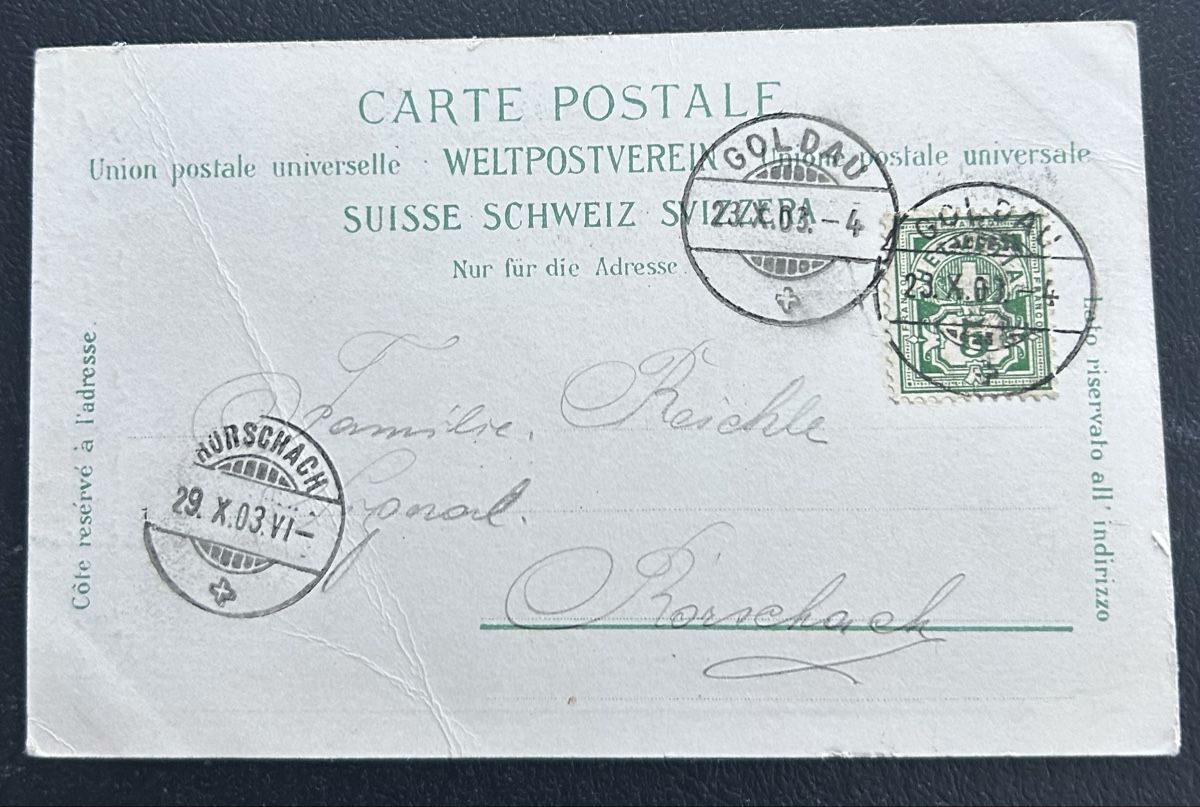 CARTE POSTALE
Union postale universelle · WELTPOSTVEREIN · Unione postale universale
SUISSE SCHWEIZ SVIZZERA
Nur für die Adresse.
Côte reservé à l'adresse.
Lato riservato all' indirizzo
GOLDAU
23.X.03.-4
GOLDAU
23.X.03.-4
HELVETIA
FRANCO
FRANCO
5
Familie Reichle
Rorschach
RORSCHACH
29.X.03.VI-